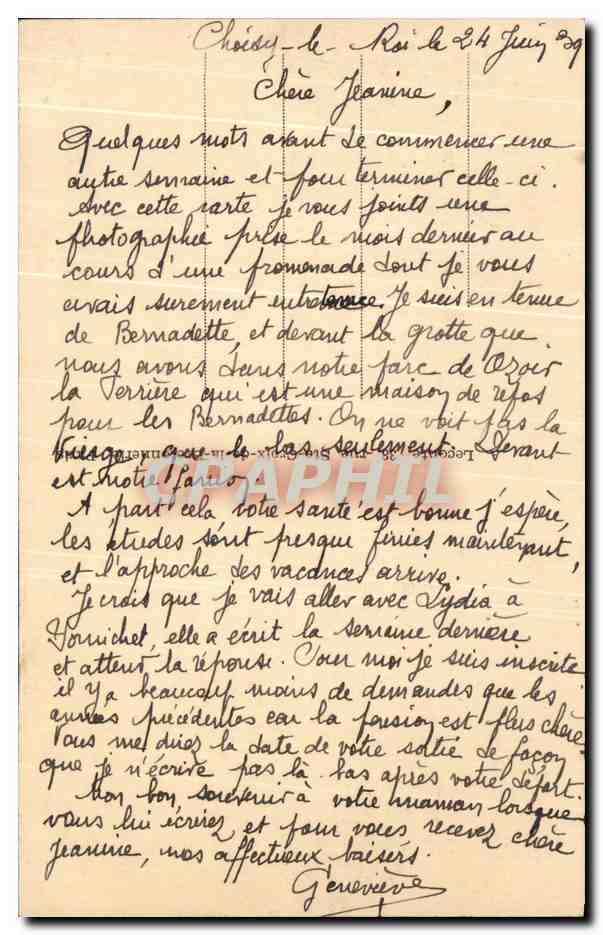 Choisy-le-Roi le 24 Juin 39
Chère Jeanine,
Quelques mots avant de commencer une
autre semaine et pour terminer celle-ci.
Avec cette carte je vous joints une
photographie prise le mois dernier au
cours d'une promenade dont je vous
avais surement Je suis en tenue
de Bernadette, et devant la grotte que
nous avons dans notre parc de Ozoir
la Ferrière qui est une maison de repos
pour les Bernadettes. On ne voit pas la
Vierge que le bas seulement. Devant
est notre
Lecomte, 38, rue Ste-Croix-de-la-Bretonnerie
CPAPHIL
A part cela votre santé est bonne j'espère,
les études sont presque finies maintenant,
et l'approche des vacances arrive.
Je crois que je vais aller avec Lydia à
Pornichet, elle a écrit la semaine dernière
et attend la réponse. Pour moi je suis inscrite
il y a beaucoup moins de demandes que les
années précédentes car la pension est plus chère
Vous me direz la date de votre sortie de façon
que je n'écrive pas là-bas après votre départ.
Mon bon souvenir à votre maman lorsque
vous lui écrirez et pour vous recevez chère
Jeanine, nos affectueux baisers.
Geneviève